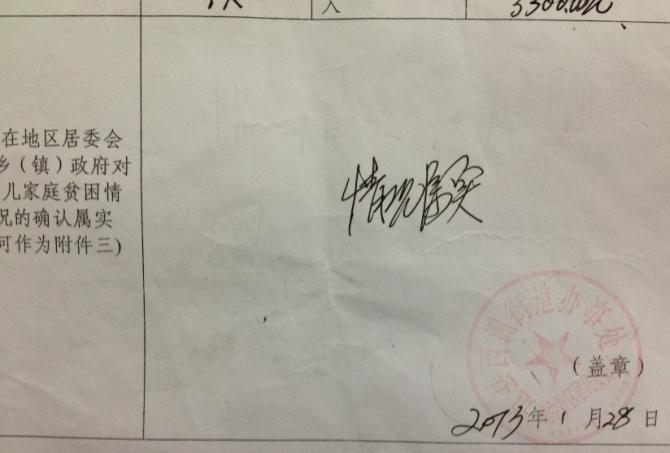 人
3300.00元
在地区居委会
乡（镇）政府对
儿家庭贫困情
况的确认属实
可作为附件三)
情况属实
街道办事处
（盖章）
2013年1月28日